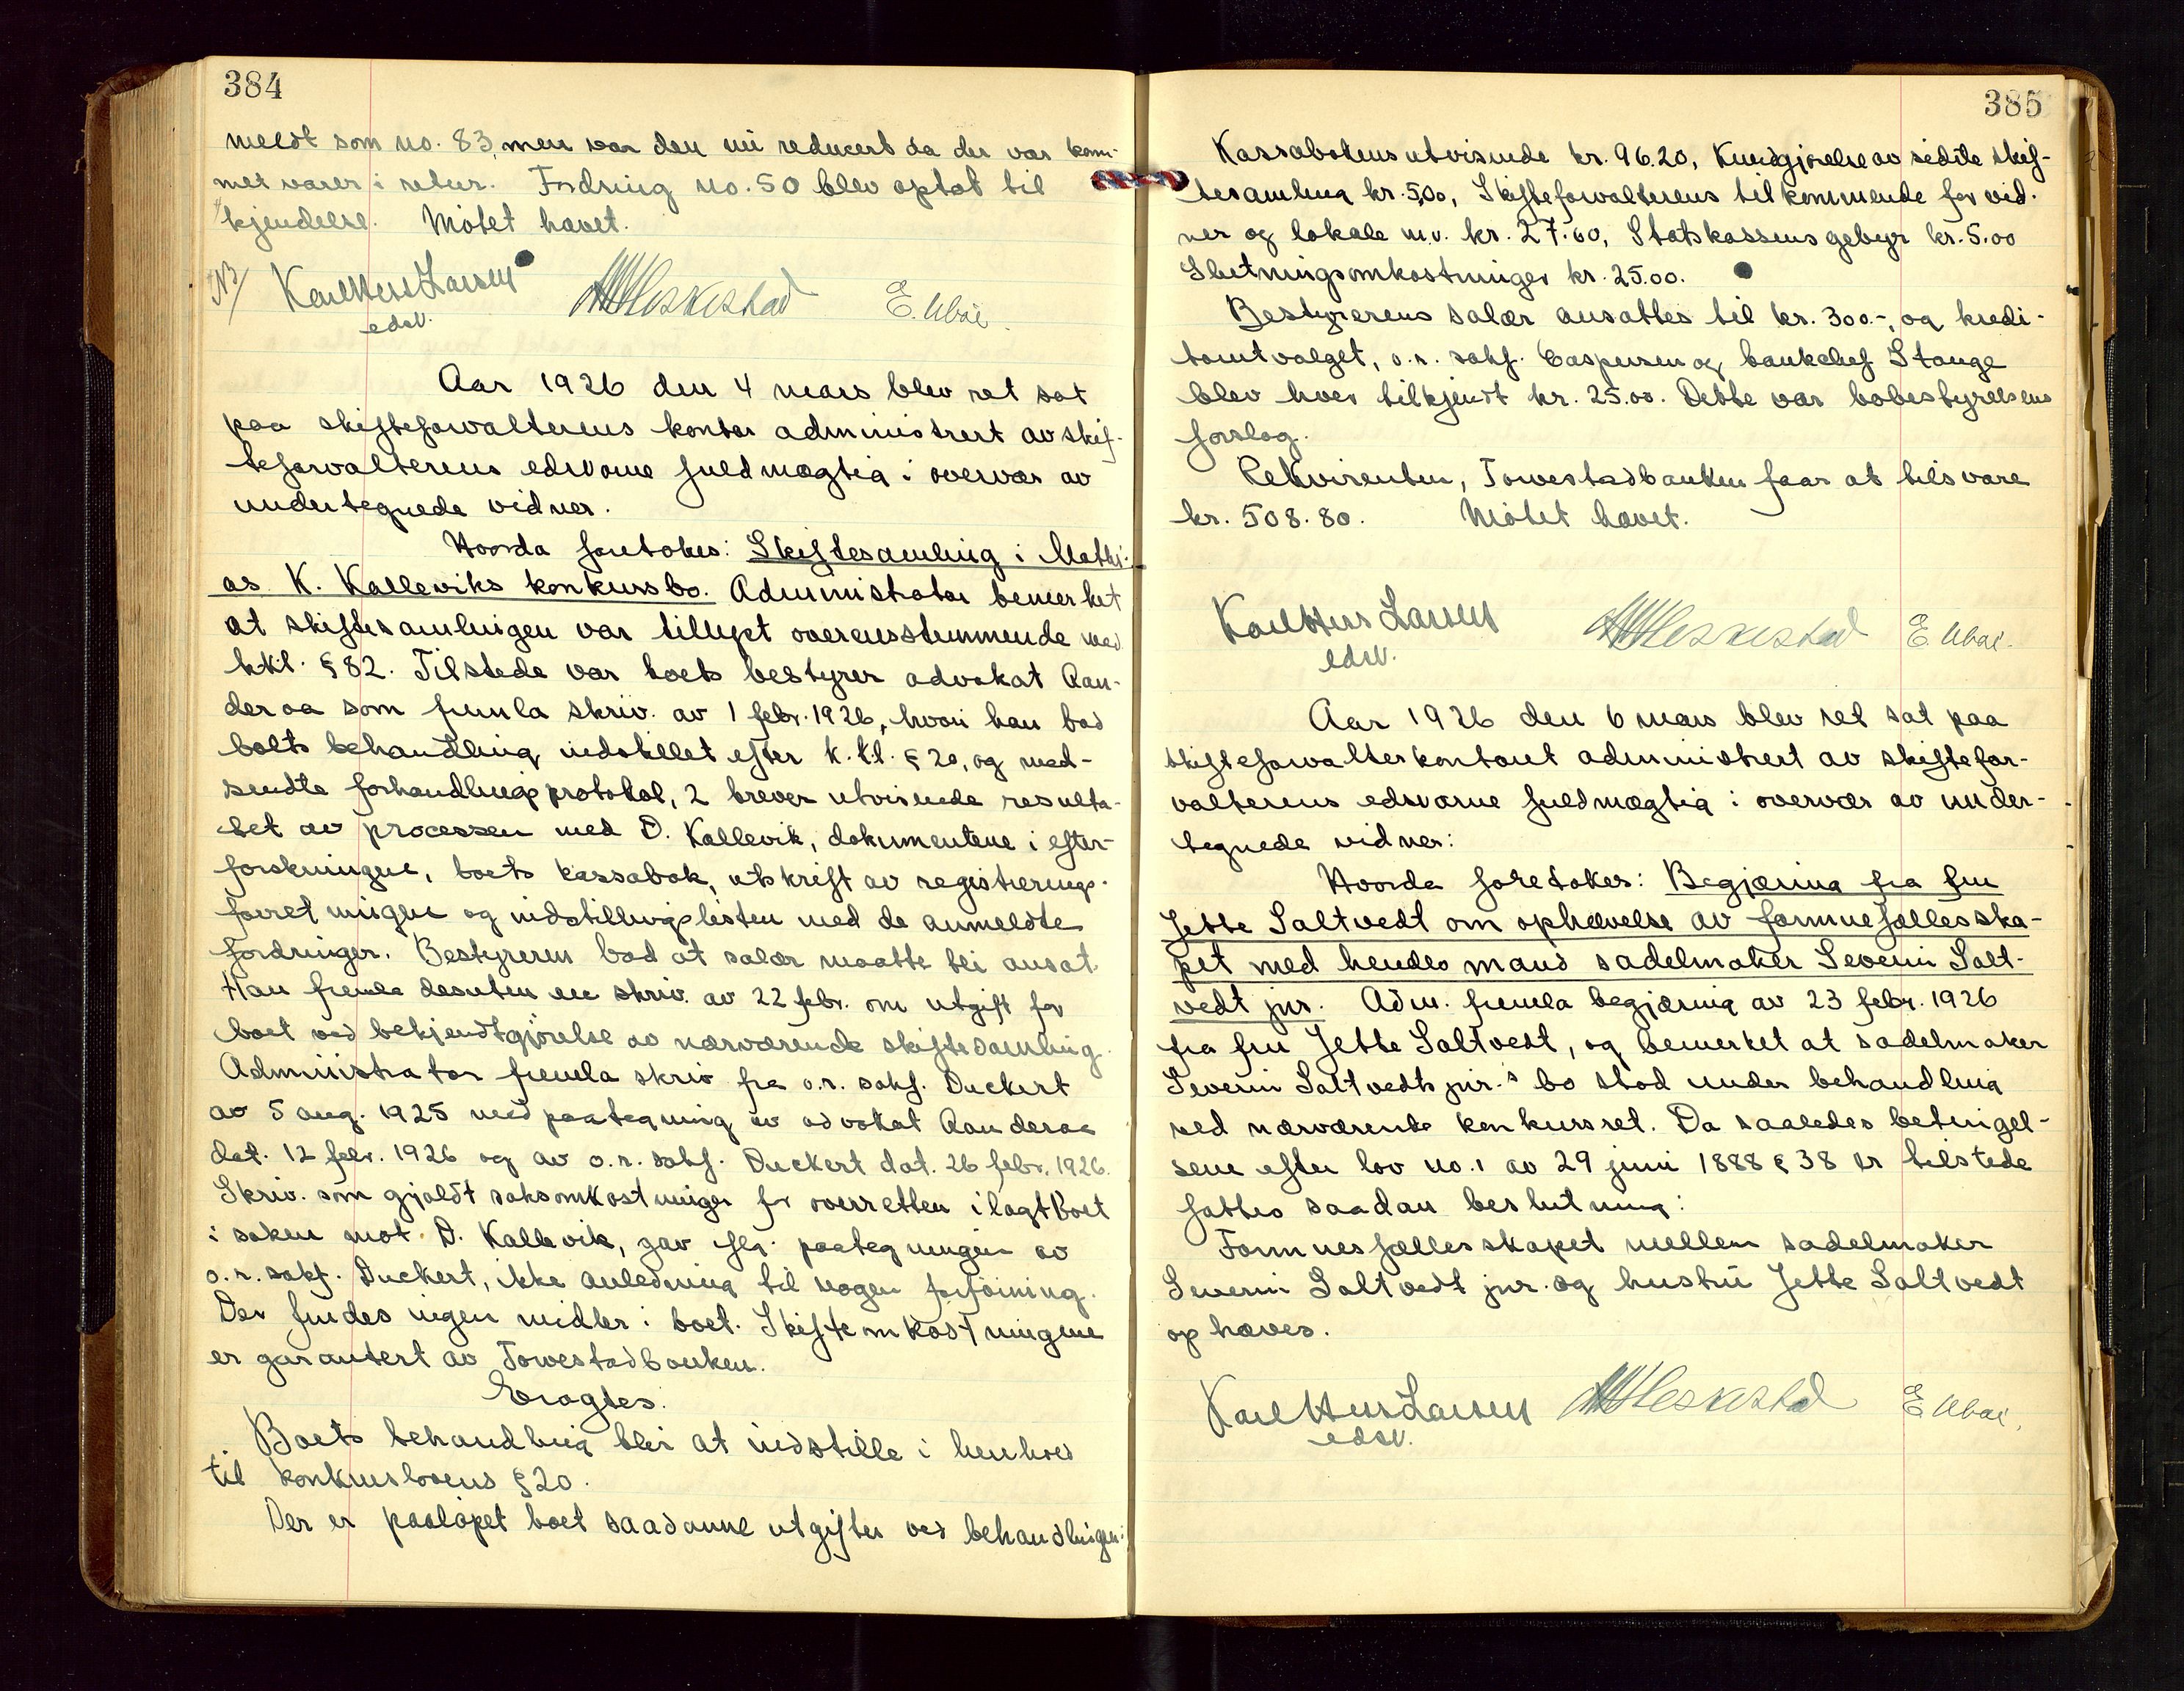 384
meldt som no. 83, men var den nu reducert da der var kom-
met varer i retur. Fordring no. 50 blev optat til
kjendelse. Møtet hævet.
Karl Hers Larsen E. Ubøe.
edsv.
Aar 1926 den 4 mars blev ret sat
paa skifteforvalterens kontor administrert av skif-
teforvalterens edsvorne fuldmægtig i overvær av
undertegnede vidner.
Hvorda foretokes: Skiftesamling i Mathi-
as K. Kalleviks konkursbo. Administrator bemerket
at skiftesamlingen var tillyst overensstemmende med
kkl. § 82. Tilstede var boets bestyrer advokat Aan-
deraa som fremla skriv. av 1 febr. 1926, hvori han bad
boets behandling indstillet efter k.k.l. § 20, og med-
sendte forhandlingsprotokol, 2 brever utvisende resulta-
tet av processen med D. Kallevik, dokumentene i efter-
forskningene, boets kassabok, utskrift av registrerings-
forretningene og indstillingslisten med de anmeldte
fordringer. Bestyreren bad at salær maatte bli ansat.
Han fremla desuten en skriv. av 22 febr. om utgift for
boet ved bekjendtgjørelse av nærværende skiftesamling.
Administrator fremla skriv fra o.r. sakf. Duckert
av 5 aug. 1925 med paategning av advokat Aanderaa
dat. 12 febr. 1926 og av o.r. sakf. Duckert dat. 26 febr. 1926.
Skriv. som gjaldt saksomkostninger for overretten ilagt boet
i saken mot D. Kallevik, gav iflg. paategningen av
o.r. sakf. Duckert, ikke anledning til nogen forføining.
Der findes ingen midler i boet. Skifteomkostningene
er garantert av Torvestadbanken.
Eragtes:
Boets behandling blir at indstille i henhold
til konkurslovens § 20.
Der er paaløpet boet saadanne utgifter ved behandlingen:
385
Kassabokens utvisende kr. 96.20, Kundgjørelse av sidste skif-
tesamling kr. 5,00, Skifteforvalterens tilkommende for vid-
ner og lokale m.v. kr. 27.60, Statskassens gebyr kr. 5.00
Slutningsomkostninger kr. 25.00.
Bestyrerens salær ansattes til kr. 300.-, og kredi-
torutvalget, o.r. sakf. Caspersen og bankchef Stange
blev hver tilkjendt kr. 25.00. Dette var bobestyrelsens
forslag.
Rekvirenten, Torvestadbanken faar at tilsvare
kr. 508.80. Møtet hævet.
Karl Hers Larsen E. Ubøe.
edsv.
Aar 1926 den 6 mars blev ret sat paa
skifteforvalterkontoret administrert av skiftefor-
valterens edsvorne fuldmægtig i overvær av under-
tegnede vidner:
Hvorda foretokes: Begjæring fra fru
Jette Saltvedt om ophævelse av formuefællesska-
pet med hendes mand sadelmaker Severin Salt-
vedt jnr. Adm. fremla begjæring av 23 febr. 1926
fra fru Jette Saltvedt, og bemerket at sadelmaker
Severin Saltvedts jnr.s bo stod under behandling
ved nærværende konkursret. Da saaledes betingel-
sene efter lov no. 1 av 29 juni 1888 § 38 er tilstede
fattes saadan beslutning:
Formuesfællesskapet mellem sadelmaker
Severin Saltvedt jnr. og hustru Jette Saltvedt
ophæves.
Karl Hers Larsen E. Ubøe.
edsv.